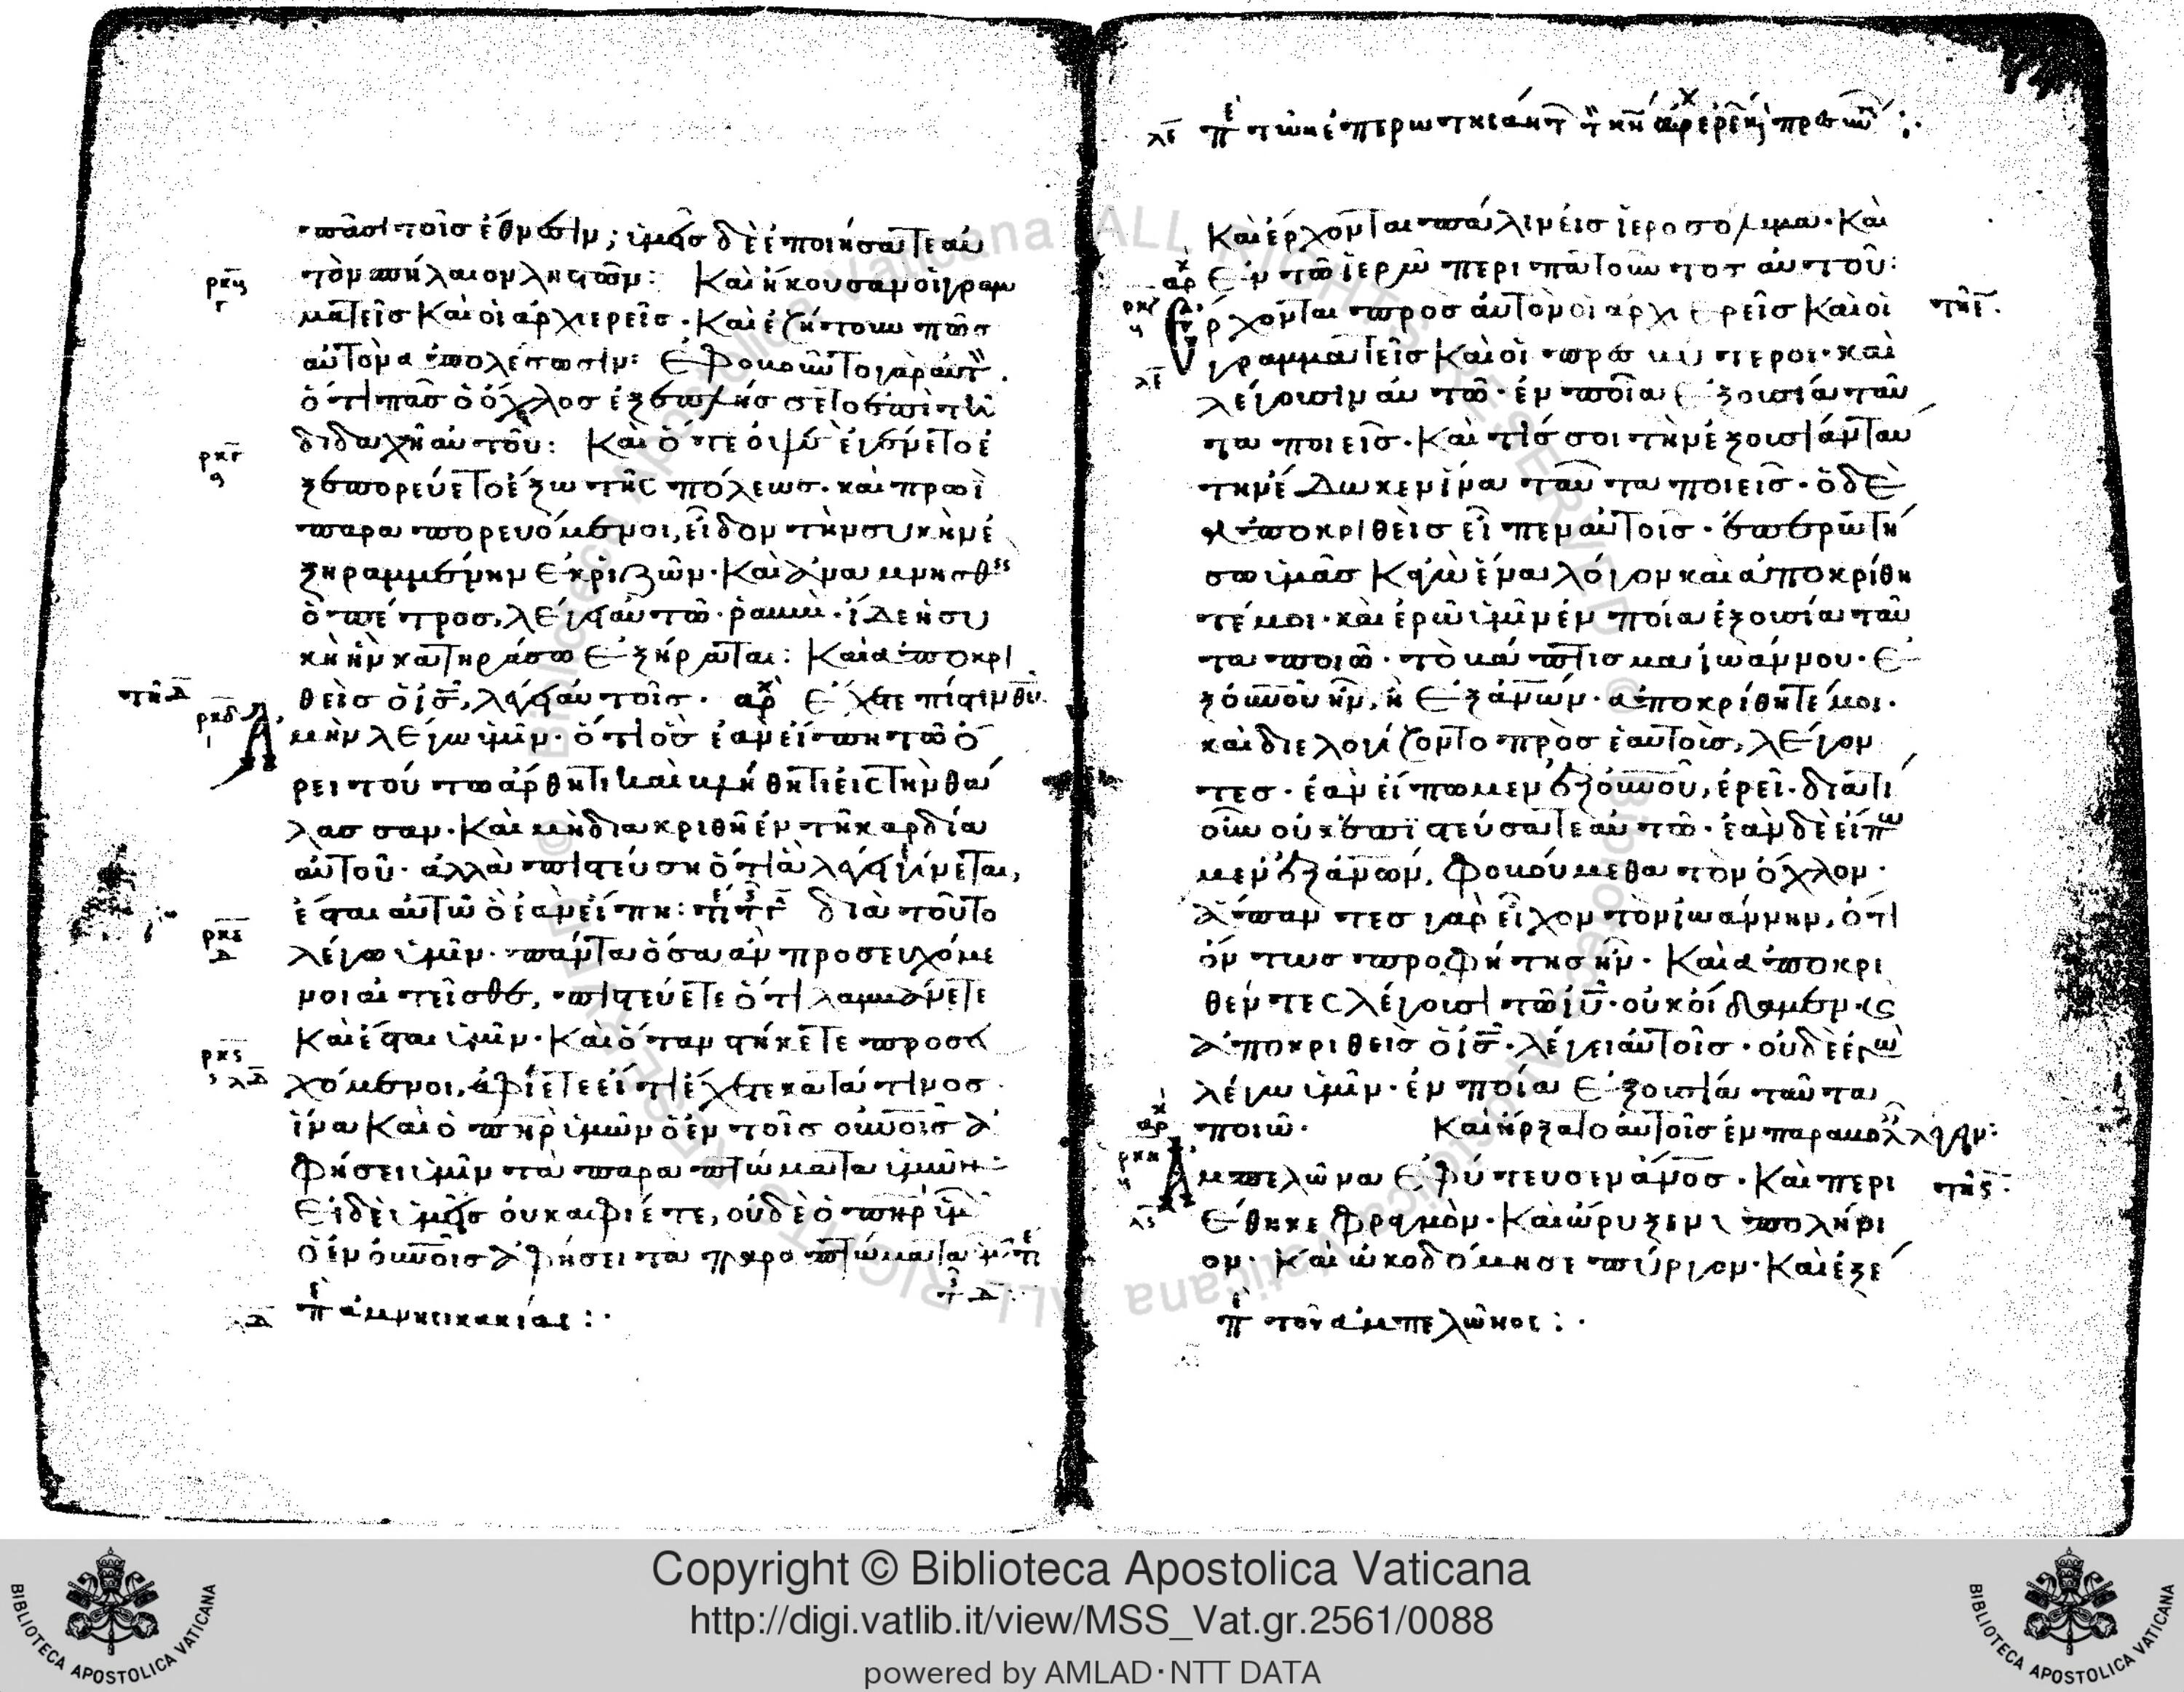 πᾶσι τοῖς ἔθνεσιν; ὑμεῖς δὲ ἐποιήσατε αὐ
τὸν σπήλαιον ληστῶν: Καὶ ἤκουσαν οἱ γραμ
ρκβ
ματεῖς καὶ οἱ ἀρχιερεῖς· καὶ ἐζήτουν πῶς
αὐτὸν ἀπολέσωσιν: ἐφοβοῦντο γὰρ αὐτ
ὅτι πᾶς ὁ ὄχλος ἐξεπλήσσετο ἐπὶ τῆ
διδαχῆ αὐτοῦ: Καὶ ὅτε ὀψὲ ἐγένετο ἐ
ρκγ
ξεπορεύετο ἔξω τῆς πόλεως. καὶ πρωῒ
παραπορευόμενοι, εἶδον τὴν συκῆν ἐ
ξηραμμένην ἐκ ριζῶν· Καὶ ἀναμνησθεὶς
ὁ πέτρος, λέγει αὐτῶ· ῥαββὶ· ἴδε ἡ συ
κῆ ἣν κατηράσω ἐξήραται: Καὶ ἀποκρι
θεὶς ὁ ις, λέγει αὐτοῖς· αρχ ἔχετε πίστιν θυ.
τῆ δ
ρκδ
ἀμὴν λέγω ὑμῖν· ὅτι ὃς ἐὰν εἴπη τῶ ὄ
ρει τούτω ἄρθητι καὶ βλήθητι εἰς τὴν θά
λασσαν· Καὶ μὴ διακριθῆ ἐν τῆ καρδία
αὐτοῦ· ἀλλὰ πιστεύση ὅτι ἃ λέγει γίνεται,
ἔσται αὐτῶ ὃ ἐὰν εἴπη: διὰ τοῦτο
ρκε
λέγω ὑμῖν· πάντα ὅσα ἂν προσευχόμε
νοι αἰτεῖσθε, πιστεύετε ὅτι λαμβάνετε
Καὶ ἔσται ὑμῖν· Καὶ ὅταν στήκετε προσευ
ρκς
λδ
χόμενοι, ἀφίετε εἴ τι ἔχετε κατά τινος
ἵνα καὶ ὁ πηρ ὑμῶν ὁ ἐν τοῖς ουνοις ἀ
φήσει ὑμῖν τὰ παραπτώματα ὑμῶν:
Εἰ δὲ ὑμεῖς οὐκ ἀφίετε, οὐδὲ ὁ πηρ ὑμ
ὁ ἐν ουνοις ἀφήσει τὰ παραπτώματα
λδ π ἀμνησικακίας:·
λε
Καὶ ἔρχονται πάλιν εἰς ἱεροσόλυμα· Καὶ
αρχ ἐν τῶ ἱερῶ περιπατοῦντος αὐτοῦ:
ἔρχονται πρὸς αὐτὸν οἱ ἀρχιερεῖς καὶ οἱ
τῆ ε.
ρκζ
γραμματεῖς καὶ οἱ πρεσβύτεροι· καὶ
λε
λέγουσιν αὐτῶ· ἐν ποία ἐξουσία ταῦ
τα ποιεῖς· Καὶ τίς σοι τὴν ἐξουσίαν ταύ
την ἔδωκεν ἵνα ταῦτα ποιεῖς· ὁ δὲ
ἀποκριθεὶς εἶπεν αὐτοῖς· ἐπερωτή
σω ὑμᾶς κἀγὼ ἕνα λόγον καὶ ἀποκρίθη
τέ μοι· καὶ ἐρῶ ὑμῖν ἐν ποία ἐξουσία ταῦ
τα ποιῶ· τὸ βάπτισμα ἰωάννου· ἐ
ξ ουνου ἦν, ἢ ἐξ ανων· ἀποκρίθητέ μοι·
καὶ διελογίζοντο πρὸς ἑαυτοὺς, λέγον
τες· ἐὰν εἴπωμεν ἐξ ουνου, ἐρεῖ· διατί
οὖν οὐκ ἐπιστεύσατε αὐτῶ· ἐὰν δὲ εἴπω
μεν ἐξ ανων, φοβούμεθα τὸν ὄχλον·
ἅπαντες γὰρ εἶχον τὸν ἰωάννην, ὅτι
ὄντως προφήτης ἦν· Καὶ ἀποκρι
θέντες λέγουσι τῶ ιυ· οὐκ οἴδαμεν· κς
ἀποκριθεὶς ὁ ις· λέγει αὐτοῖς· οὐδὲ ἐγὼ
λέγω ὑμῖν· ἐν ποία ἐξουσία ταῦτα
ποιῶ· Καὶ ἤρξατο αὐτοῖς ἐν παραβολ λέγειν:
αρχ
ρκη
ἀμπελῶνα ἐφύτευσεν ανος· Καὶ περι
τῆ ς
λς
έθηκε φραγμὸν· Καὶ ὤρυξεν ὑπολήνι
ον· Καὶ ὠκοδόμησε πύργον· Καὶ ἐξέ
π τοῦ ἀμπελῶνος:·
Copyright © Biblioteca Apostolica Vaticana
http://digi.vatlib.it/view/MSS_Vat.gr.2561/0088
powered by AMLAD·NTT DATA
BIBLIOTECA APOSTOLICA VATICANA
BIBLIOTECA APOSTOLICA VATICANA